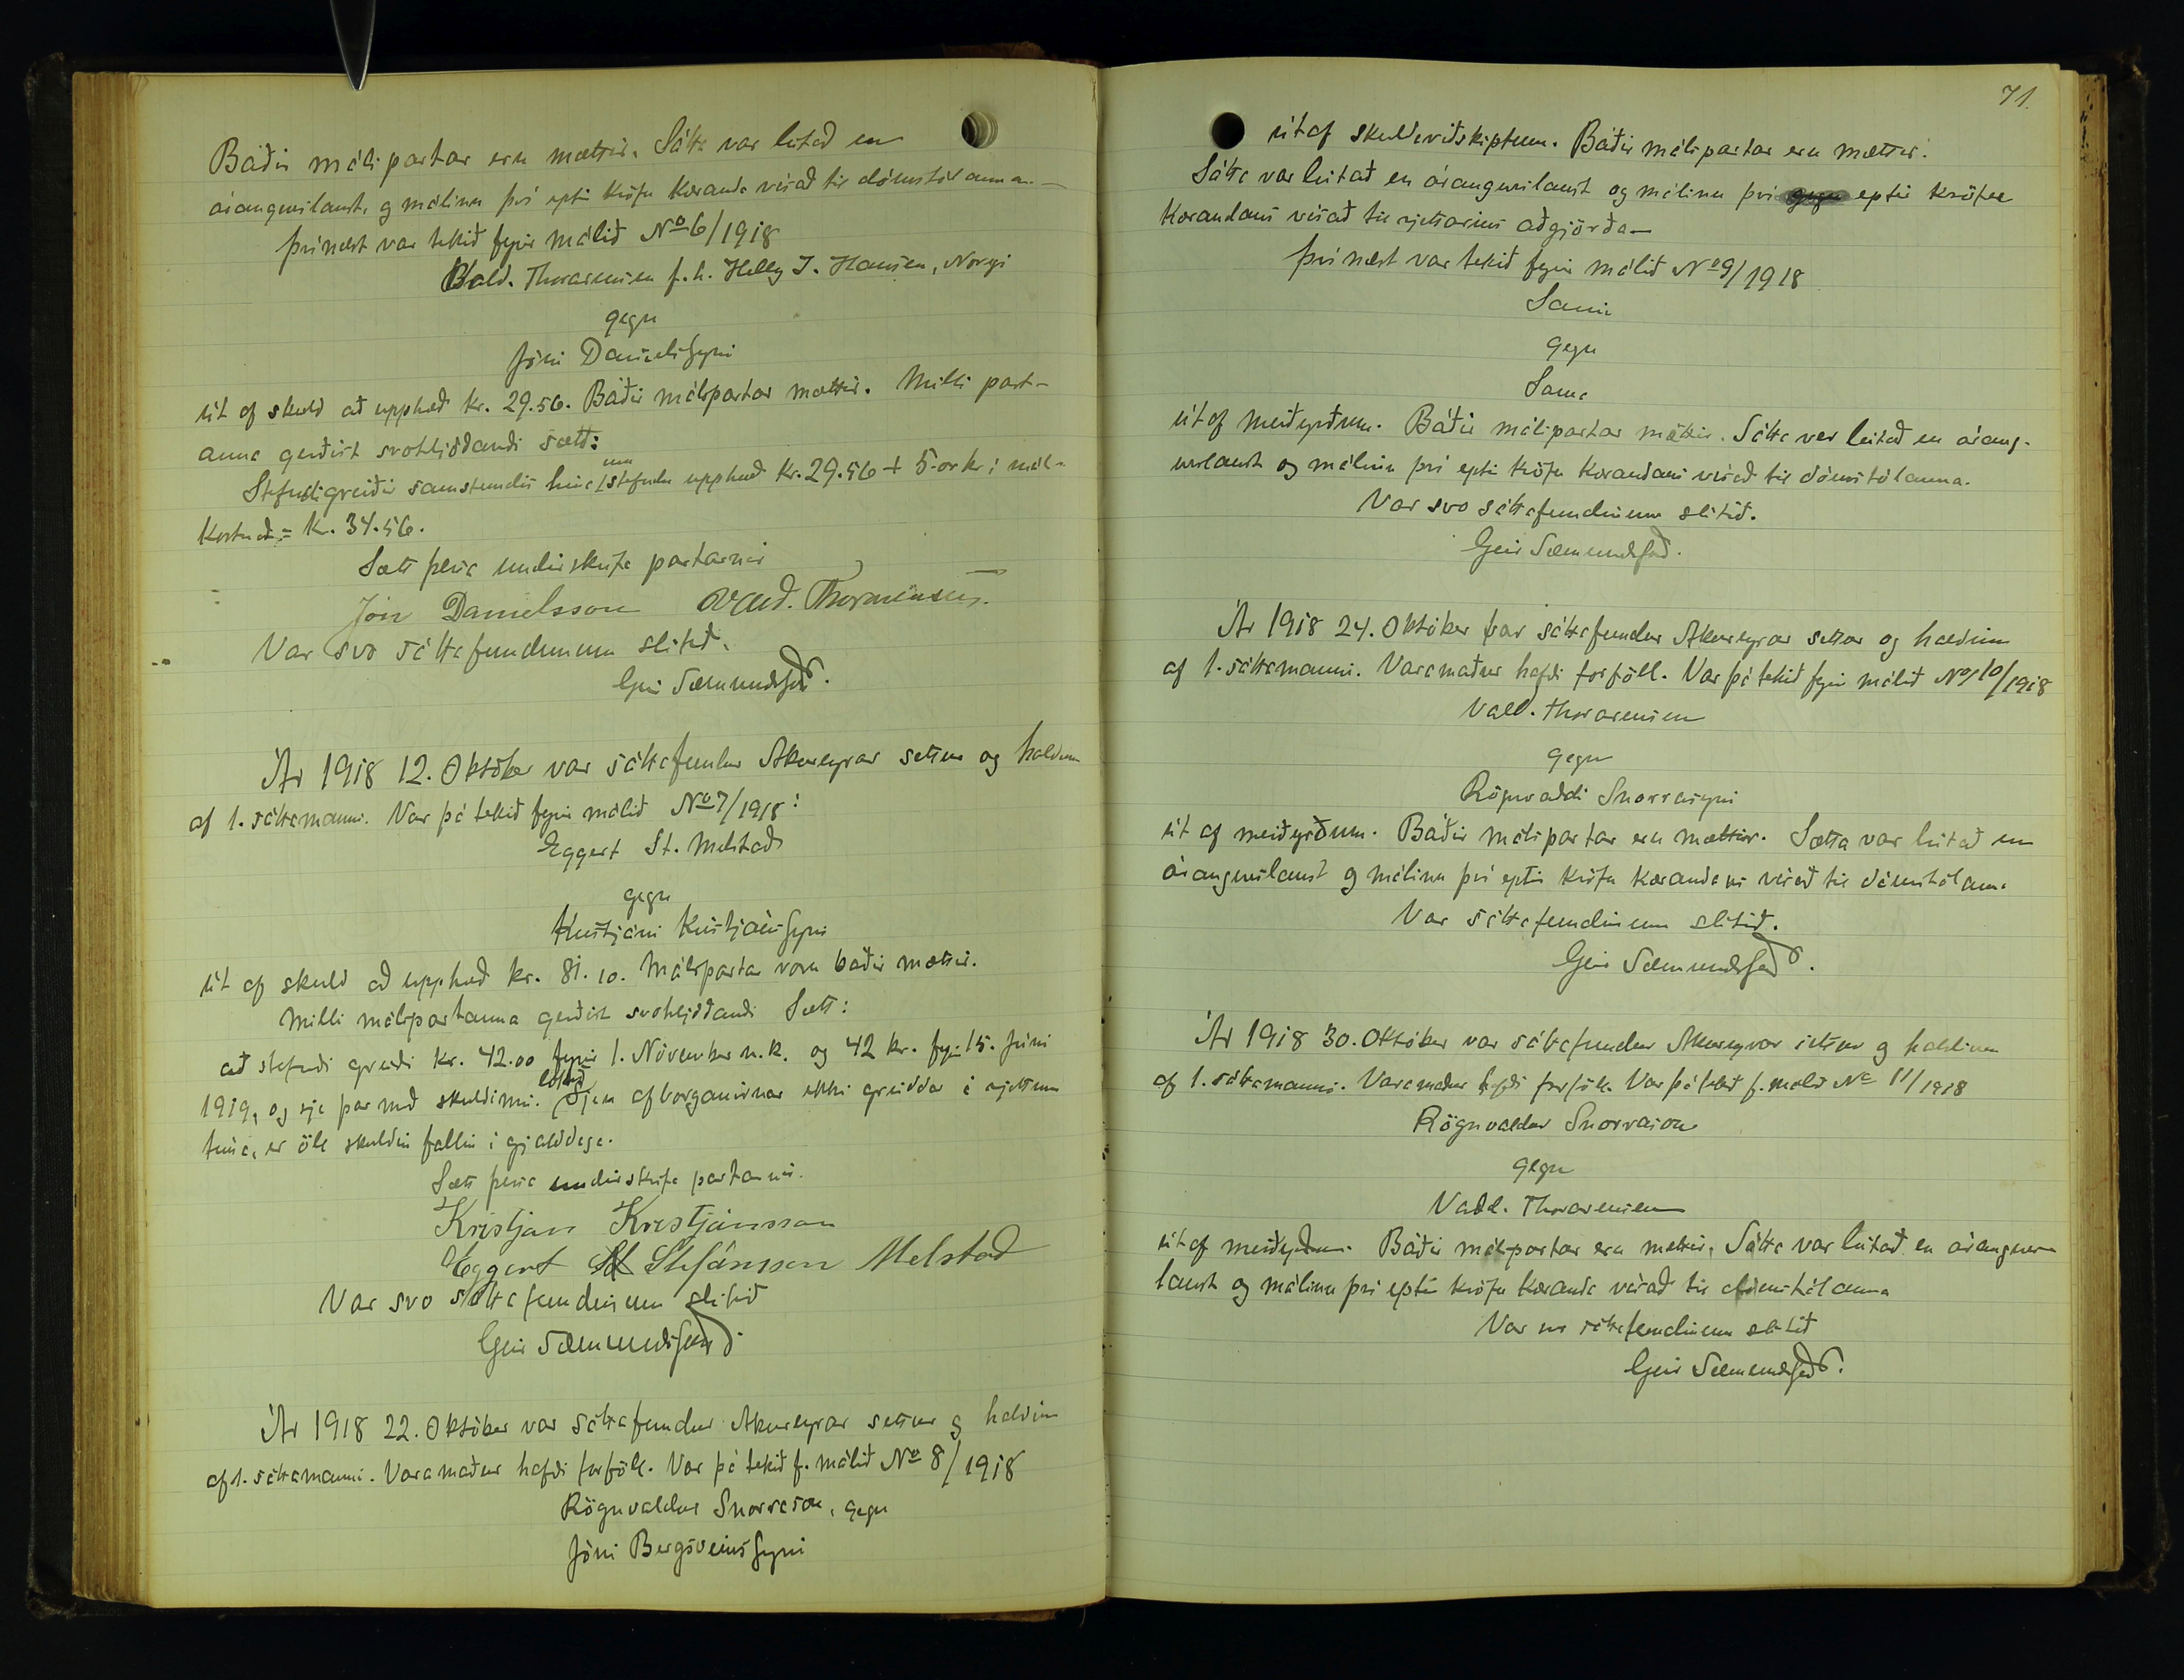 Báðir málspartar eru mættir. Sátta var leitað en
árangurslaust, og málinu því eptir kröfu kæranda vísað til dómstólanna.—
Þvínæst var tekið fyrir málið No 6/1918
Vald. Thorarensen f.h. Helly I. Hansen, Norgi
gegn
Jóni Daníelssyni
út af skuld að upphæð kr. 29.56. Báðir málspartar mættir. Milli part-
anna gerðist svohljóðandi sætt:
Stefndi greiðir samstundis hina umstefndu upphæð kr. 29.56 + 5- kr í máls-
kostnað = kr. 34.56.
Sætt þessa undirskrifa partarnir
Jón Danielsson Vald. Thorarensen.
Var svo sáttafundinum slitið.
Geir Sæmundsson.
Ár 1918 12. Október var sáttafundur Akureyrar settur og haldinn
af 1. sáttamanni. Var þá tekið fyrir málið No 7/1918:
Eggert St. Melstað
gegn
Kristjáni Kristjánssyni
út af skuld að upphæð kr. 81.10. Málspartar voru báðir mættir.
Milli málspartanna gerðist svohljóðandi Sætt:
að stefndi greiði kr. 42.00 fyrir 1. Nóvember n.k. og 42 kr. fyrir 15. Júní
1919, og sje þar með skuldinni lokið. Sjeu afborganirnar ekki greiddar á rjettum
tíma, er öll skuldin fallin í gjalddaga.
Sætt þessa undirskrifa partarnir.
Kristján Kristjánsson
Eggert St Stefánsson Melstað
Var svo sáttafundinum slitið
Geir Sæmundsson
Ár 1918 22. Október var sáttafundur Akureyrar settur og haldinn
af 1. sáttamanni. Varamaður hafði forföll. Var þá tekið f. málið No 8/1918
Rögnvaldur Snorrason, gegn
Jóni Bergsveinssyni
71.
út af skuldaviðskiptum. Báðir málspartar eru mættir.
Sátta var leitað en árangurslaust og málinu því eptir kröfu
kærandans vísað til rjettarins aðgjörða—
Því næst var tekið fyrir málið No 9/1918
Sami
gegn
Sama
út af meiðyrðum. Báðir málspartar mættir. Sátta var leitað en árang-
urslaust og málinu því eptir kröfu kærandans vísað til dómstólanna.
Var svo sáttafundinum slitið.
Geir Sæmundsson.
Ár 1918 24. Október var sáttafundur Akureyrar settur og haldinn
af 1. sáttamanni. Varamaður hafði forföll. Var þá tekið fyrir málið No 10/1918
Vald. Thorarensen
gegn
Rögnvaldi Snorrasyni
út af meiðyrðum. Báðir málspartar eru mættir. Sátta var leitað en
árangurslaust og málinu því eptir kröfu kærandans vísað til dómstólanna
Var sáttafundinum slitið.
Geir Sæmundsson.
Ár 1918 30. Október var sáttafundur Akureyrar settur og haldinn
af 1. sáttamanni. Varamaður hafði forföll. Var þá tekið f. málið No 11/1918
Rögnvaldur Snorrason
gegn
Vald. Thorarensen
út af meiðyrðum. Báðir málspartar eru mættir, Sátta var leitað en árangurs-
laust og málinu því eptir kröfu kæranda vísað til dómstólanna
Var svo sáttafundinum slitið
Geir Sæmundsson.